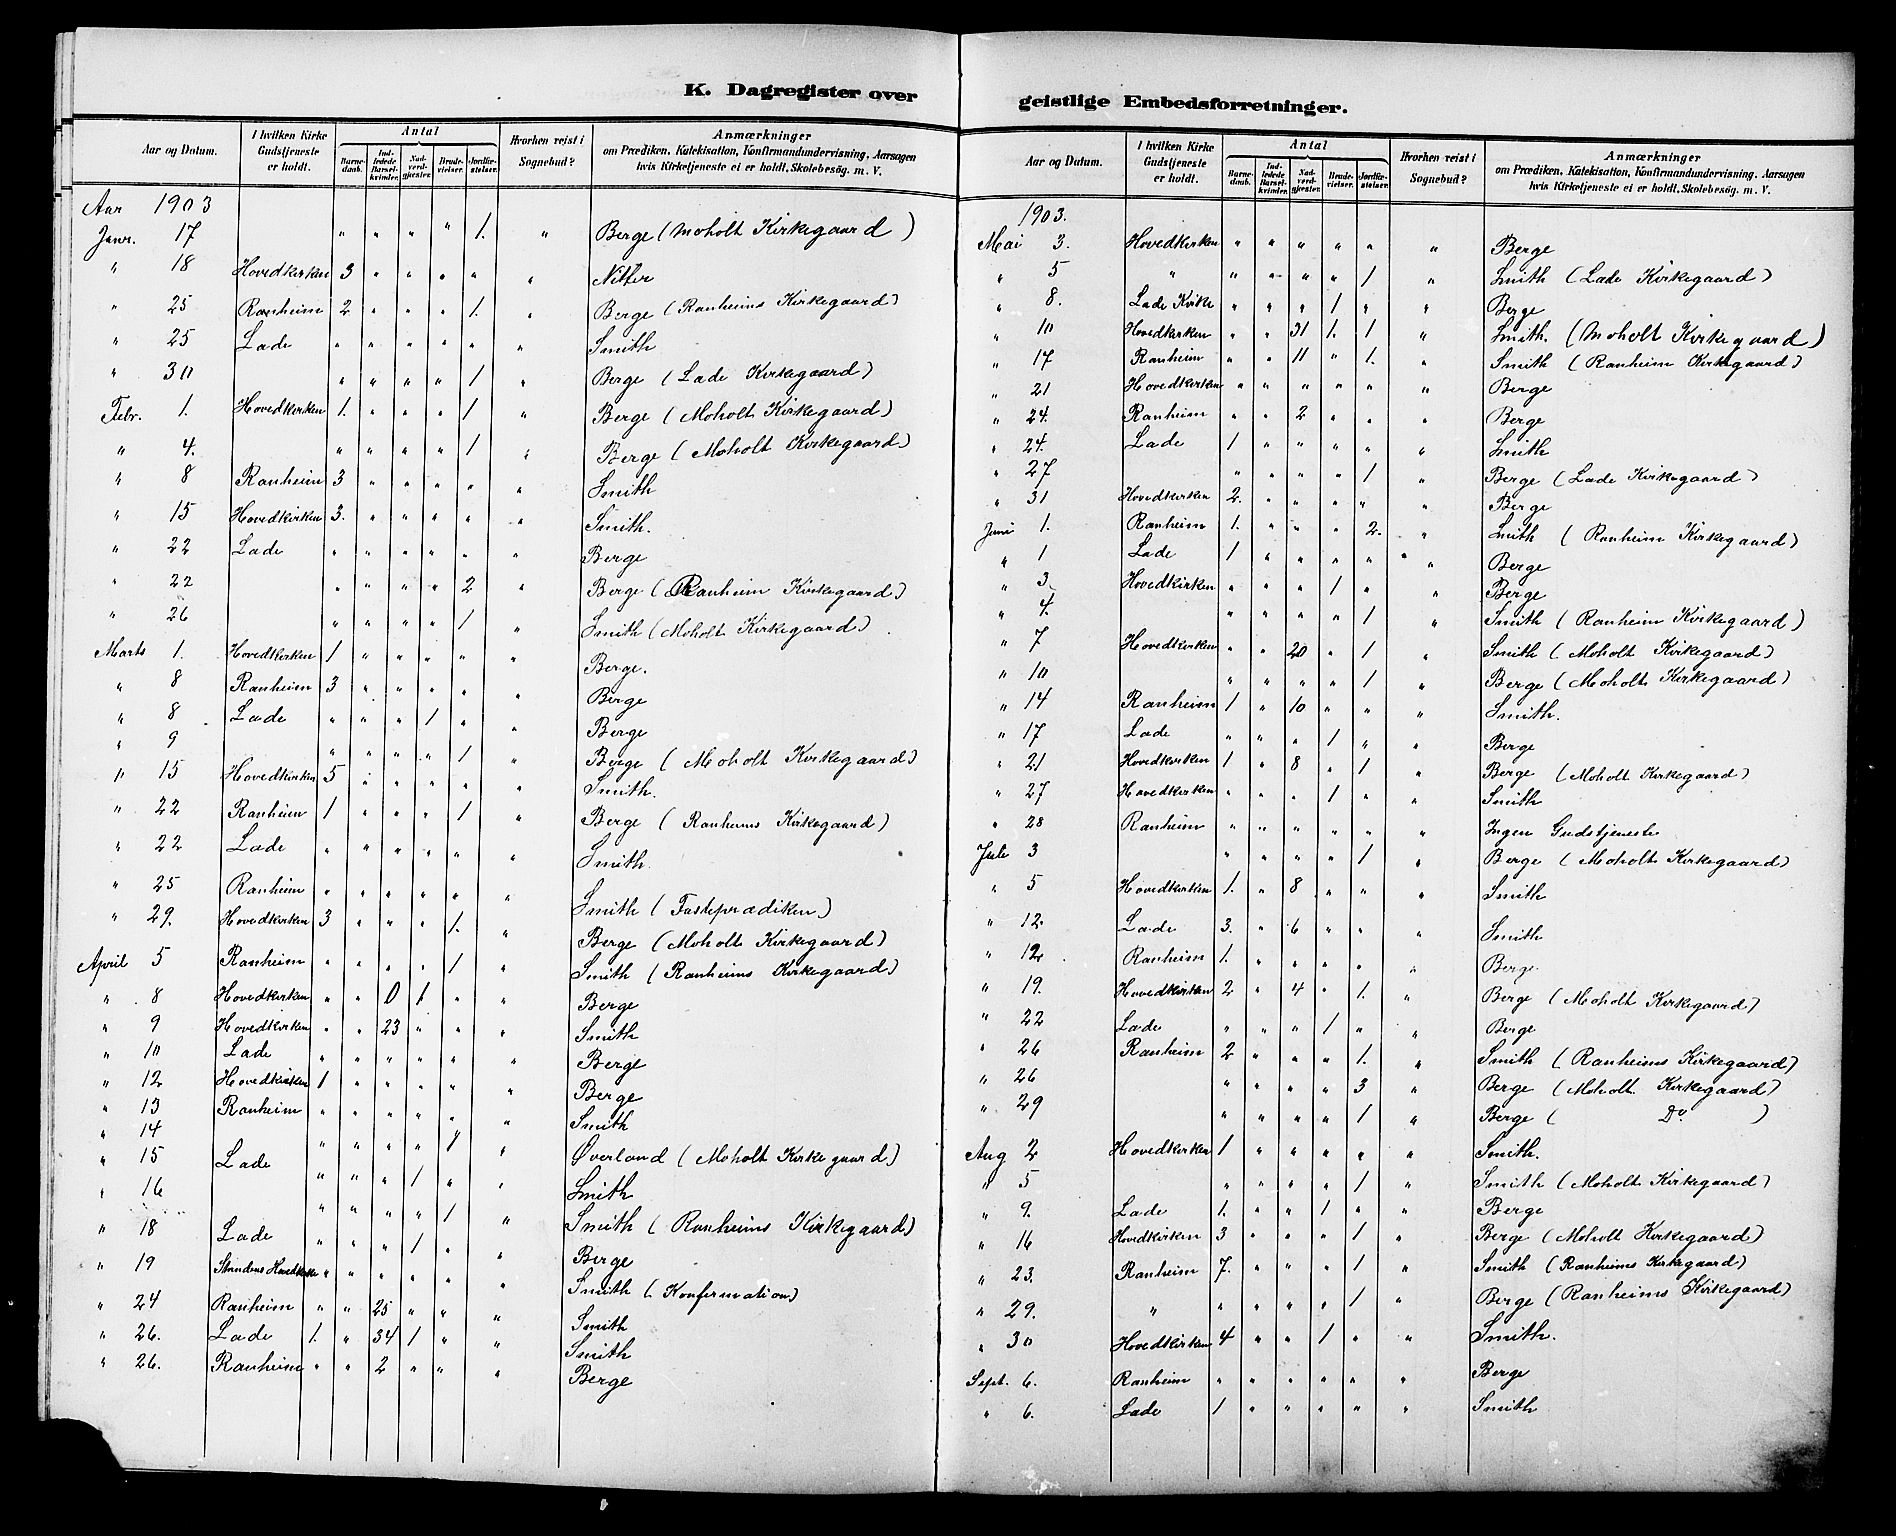 K. Dagregister over
Aar og Datum. | I hvilken Kirke Gudstjeneste er holdt. | Antal | Barnedaab. | Indledede Barselkvinder. | Nadverdgjester. | Brudevielser. | Jordfæstelser. | Hvorhen reist i Sognebud? | Anmærkninger om Prædiken, Katekisation, Konfirmandundervisning, Aarsagen hvis Kirketjeneste ei er holdt, Skolebesög m. V.
Aar 1903
Janr. 17 " " " " 1. " Berge (Moholt Kirkegaard)
" 18 Hovedkirken 3 " " " " " Nitter
" 25 Ranheim 2 " " " 1. " Berge (Ranheims Kirkegaard)
" 25 Lade " " " " " " Smith
" 30 " " " " 1 " Berge (Lade Kirkegaard)
Febr. 1. Hovedkirken 1. " " " 1 " Berge (Moholt Kirkegaard)
" 4. " " " " 1 " Berge (Moholt Kirkegaard)
" 8 Ranheim 3 " " " " " Smith
" 15 Hovedkirken 3. " " " " " Smith.
" 22 Lade " " " " " " Berge
" 22 " " " " 2 " Berge (Ranheim Kirkegaard)
" 26 " " " " 1 " Smith (Moholt Kirkegaard)
Marts 1. Hovedkirken 1 " " " " " Berge.
" 8 Ranheim 3 " " " " " Berge
" 8 Lade " " " 1 " " Berge
" 9 " " " " 1 " Berge (Moholt Kirkegaard)
" 15 Hovedkirken 5 " " " " " Smith.
" 22 Ranheim 1 " " " 1 " Berge (Ranheims Kirkegaard)
" 22 Lade " " " " " " Smith.
" 25 Ranheim " " " " " " Smith (Fasteprædiken)
" 29. Hovedkirken 3 " " " 1. " Berge (Moholt Kirkegaard)
April 5 Ranheim " " " " 1 " Smith (Ranheims Kirkegaard)
" 8 Hovedkirken " " 0 1. " " Berge
" 9 Hovedkirken " " 23 " " " Smith
" 10 Lade " " " " " " Berge
" 12 Hovedkirken 1 " " " " " Berge
" 13 Ranheim " " " " " " Smith
" 14 " " " " 1 " Øverland (Moholt Kirkegaard)
" 15 Lade " " " 1 " " Smith
" 16 " " " " 1 " Smith (Ranheims Kirkegaard)
" 18 Lade " " " 1 " " Berge
" 19 Strindens Hovedkirke " " " " " " Smith (Konfirmation)
" 24 Ranheim " " 25 " " " Smith
" 26. Lade 1. " 34 1 " " Smith
" 26. Ranheim " " 2 " " " Berge
geistlige Embedsforretninger.
Aar og Datum. | I hvilken Kirke Gudstjeneste er holdt. | Antal | Barnedaab. | Indledede Barselkvinder. | Nadverdgjester. | Brudevielser. | Jordfæstelser. | Hvorhen reist i Sognebud? | Anmærkninger om Prædiken, Katekisation, Konfirmandundervisning, Aarsagen hvis Kirketjeneste ei er holdt, Skolebesög m. V.
1903.
Mai 3. Hovedkirken " " " " " " Berge
" 5 " " " " " 1 " Smith (Lade Kirkegaard)
" 8. Lade Kirke " " " 1 " " Berge
" 10 Hovedkirken " " 31 1. 1 " Smith. (Moholt Kirkegaard)
" 17 Ranheim " " 11 " 1. " Smith (Ranheim Kirkegaard)
" 21 Hovedkirken " " " " " " Berge
" 24. Ranheim " " 2 " " " Berge
" 24. Lade 1 " " " " " Smith
" 27 " " " " 1 " Berge (Lade Kirkegaard)
" 31 Hovedkirken 2. " " " " " Berge
Juni 1. Ranheim 1. " " " 2. " Smith (Ranheim Kirkegaard)
" 1 Lade 1 " " " " " Berge
" 3 Hovedkirken " " " 1 " " Berge
" 4. " " " " 1 " Smith (Ranheim Kirkegaard)
" 7 Hovedkirken " " 20 " 1 " Smith (Moholt Kirkegaard)
" 10 " " " " 1 " Berge (Moholt Kirkegaard)
" 14 Ranheim 1 " 10 " " " Smith.
" 17 Lade " " " 1 " " Berge
" 21 Hovedkirken 1 " 8 " 1 " Berge (Moholt Kirkegaard)
" 27 Hovedkirken " " " 1 " " Smith
" 28 Ranheim " " " " " " Ingen Gudstjeneste
Juli 3 " " " " 1 " Berge (Moholt Kirkegaard)
" 5 Hovedkirken 1. " 8 " " " Smith
" 12. Lade 3. " 6 " " " Smith
" 12 Ranheim 1. " " " " " Berge
" 19. Hovedkirken 2 " 4 " 1. " Berge (Moholt Kirkegaard)
" 22 Lade " " " 1 " " Berge
" 26 Ranheim 2 " " " 1. " Smith (Ranheims Kirkegaard)
" 26 " " " " 3 " Berge (Moholt Kirkegaard)
" 29 " " " " 1 " Berge ( Do )
Aug 2 Hovedkirken 1 " " " " " Smith.
" 5 " " " " 1 " Smith (Moholt Kirkegaard)
" 9. Lade 1. " " 1 " " Berge
" 16 Hovedkirken 3 " " " 1 " Berge (Moholt Kirkegaard)
" 23. Ranheim 7. " " " 1 " Smith (Ranheims Kirkegaard)
" 29. " " " " " 1 " Berge (Ranheims Kirkegaard)
" 30 Hovedkirken 4 " " 1 " " Smith.
Sept. 6. Ranheim " " " " " " Berge
" 6. Lade 1 " " " " " Smith